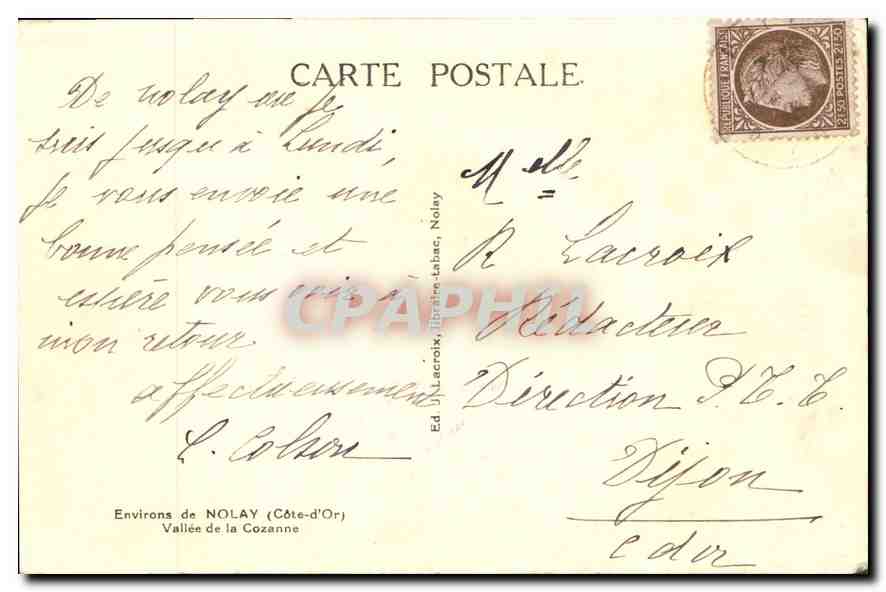 CARTE POSTALE.
De Nolay ou je
suis jusqu'à Lundi,
je vous envoie une
bonne pensée et
espère vous voir à
mon retour
affectueusement
L. Colson
Environs de NOLAY (Côte-d'Or)
Vallée de la Cozanne
Ed. J. Lacroix, libraire-tabac, Nolay
Melle
R Lacroix
Rédacteur
Direction P.T.T.
Dijon
C d'or
REPUBLIQUE FRANÇAISE
2F.50 POSTES 2F.50
CPAPHIL